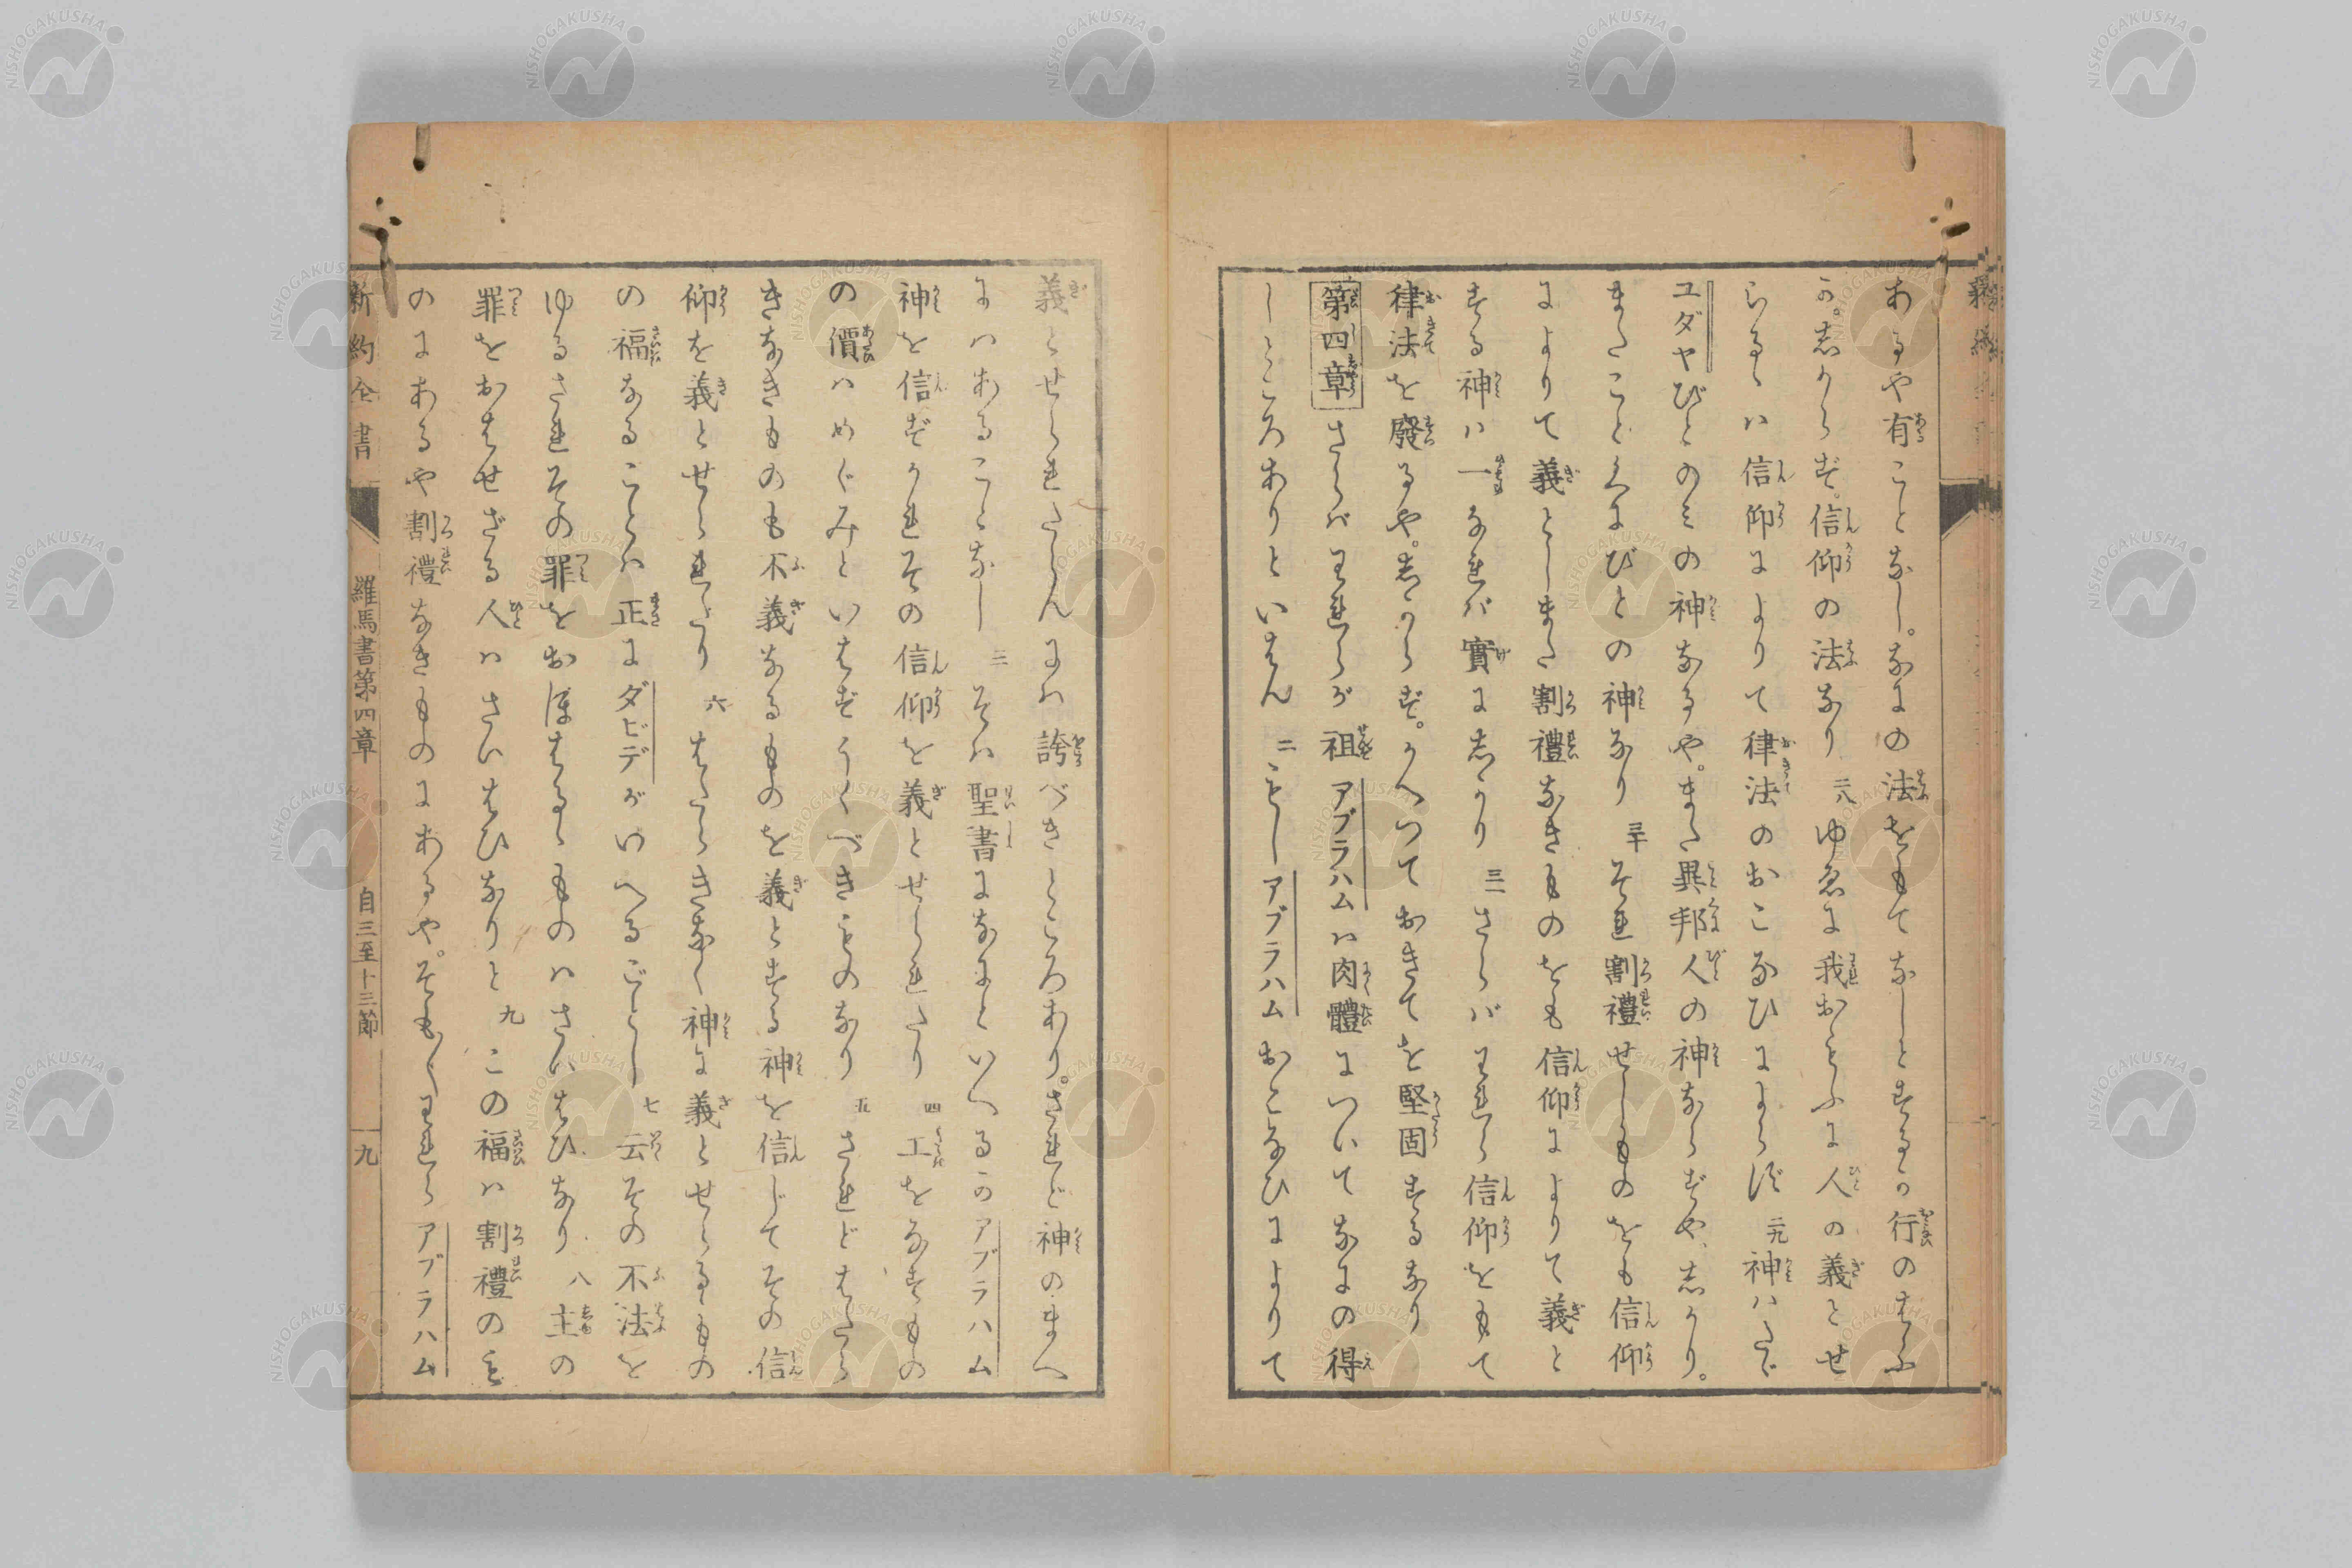 あるや有ことなし。なにの法をもてなしとするか行のはふ
か。志からず。信仰の法なり 二八 ゆゑに我おもふに人の義とせ
らるゝハ信仰によりて律法のおこなひによらず 二九 神ハたゞ
ユダヤびとのミの神なるや。また異邦人の神ならずや、志かり。
またことくにびとの神なり 三十 それ割禮せしものをも信仰
によりて義としまた割禮なきものをも信仰によりて義と
する神ハ一なれバ實に志かり 三一 さらバわれら信仰をもて
律法を廢るや。志からず。かへつておきてを堅固するなり
第四章 さらバわれらが祖アブラハムハ肉體についてなにの得
しところありといはん 二 もしアブラハムおこなひによりて
義とせられたらんにハ誇べきところあり。されど神のまへ
にハあることなし 三 そハ聖書になにといへるかアブラハム
神を信ずかれその信仰を義とせられたり 四 工をなすもの
の價ハめぐみといはずうくべきものなり 五 されどはたら
きなきものも不義なるものを義とする神を信じてその信
仰を義とせられたり 六 はたらきなく神に義とせらるもの
の福なることハ正にダビデがいへるごとし 七 云その不法を
ゆるされその罪をおほはるゝものハさいはひなり 八 主の
罪をおはせざる人ハさいはひなりと 九 この福ハ割禮のも
のにあるや割禮なきものにあるや。そも〳〵われらアブラハム
新約全書 羅馬書第四章 自三至十三節 九